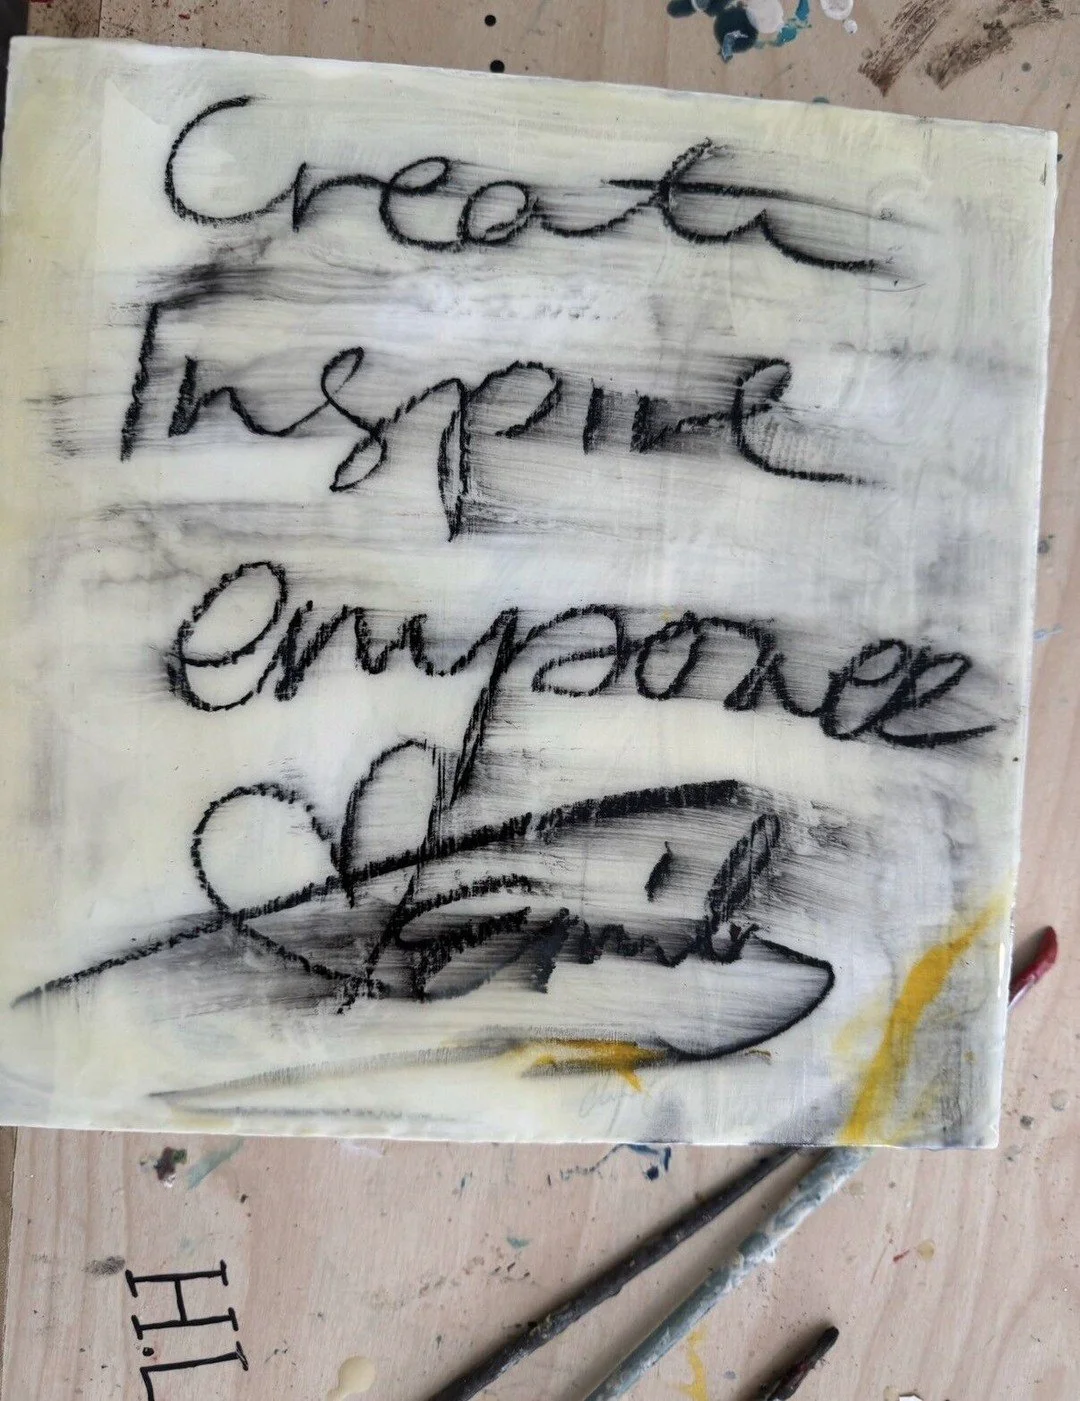 Create
Inspire
empower
H.L